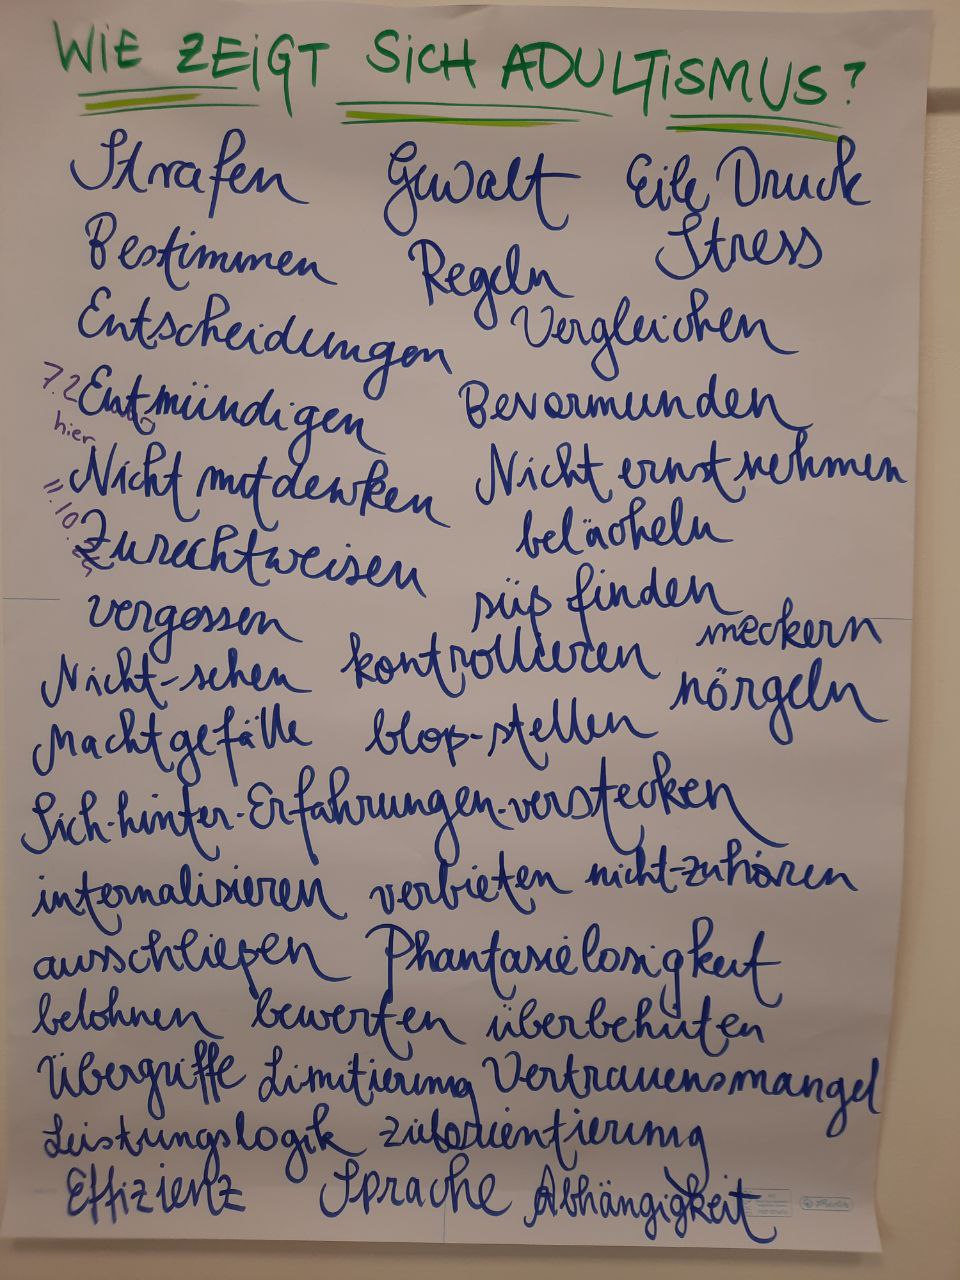 WiE ZEiGT SiCH ADULTiSMUS?
Strafen Gewalt Eile Druck
Bestimmen Regeln Stress
Entscheidungen Vergleichen
Entmündigen Bevormunden
hier
Nicht mitdenken Nicht ernst nehmen
Zurechtweisen belächeln
vergessen süß finden
meckern
Nicht-sehen kontrollieren nörgeln
Machtgefälle bloß-stellen
Sich-hinter-Erfahrungen-verstecken
internalisieren verbieten nicht-zuhören
ausschließen Phantasielosigkeit
belohnen bewerten überbehüten
Übergriffe Limitierung Vertrauensmangel
Leistungslogik
Effizienz Sprache Abhängigkeit